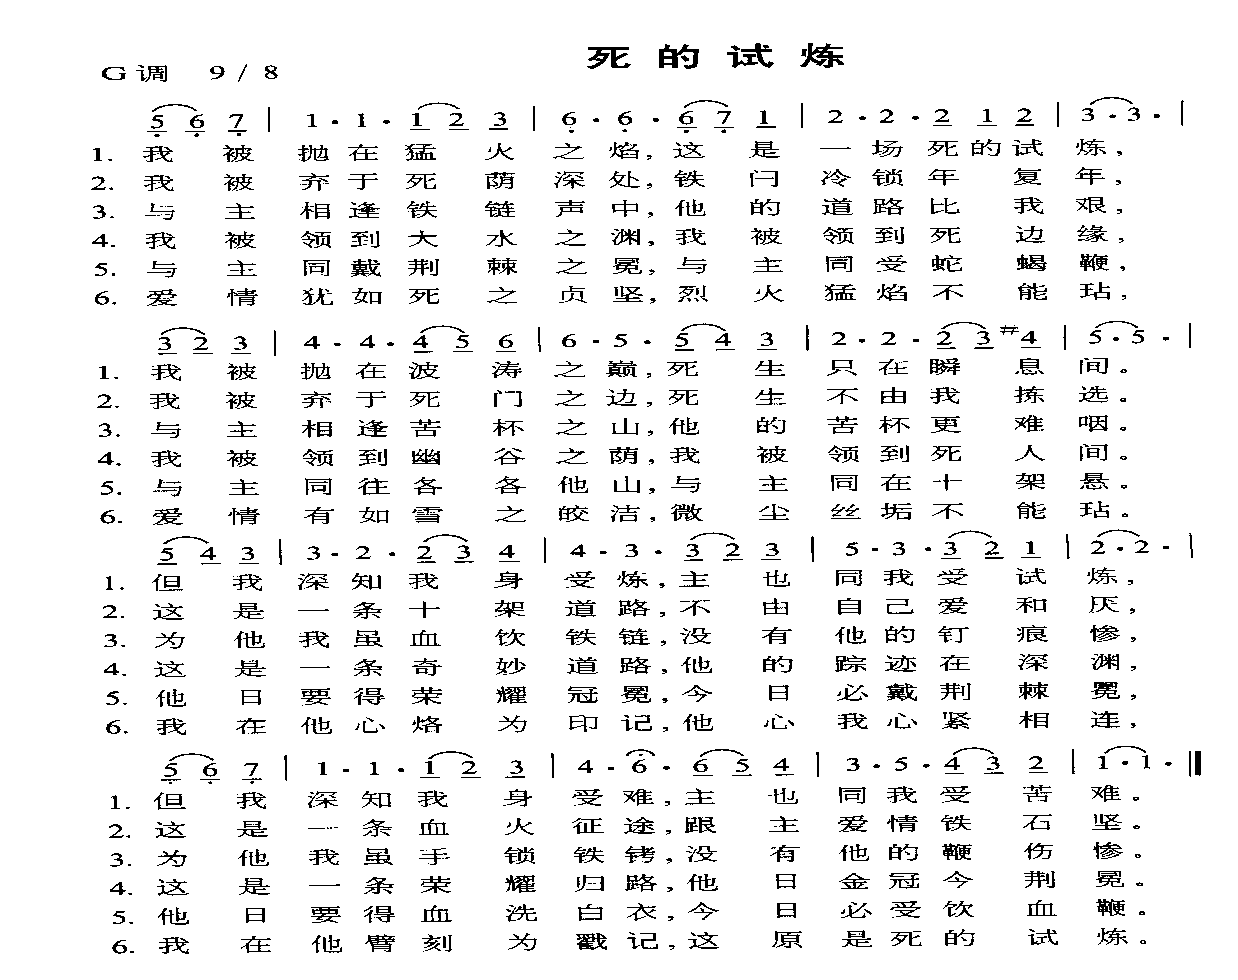 死的试炼
G调 9/8
5 6 7 | 1· 1· 1 2 3 | 6· 6· 6 7 1 | 2· 2· 2 1 2 | 3· 3· |
1. 我被抛在猛火之焰，这是一场死的试炼，
2. 我被弃于死荫深处，铁闩冷锁年复年，
3. 与主相逢铁链声中，他的道路比我艰，
4. 我被领到大水之渊，我被领到死边缘，
5. 与主同戴荆棘之冕，与主同受蛇蝎鞭，
6. 爱情犹如死之贞坚，烈火猛焰不能玷，
3 2 3 | 4· 4· 4 5 6 | 6· 5· 5 4 3 | 2· 2· 2 3 #4 | 5· 5· |
1. 我被抛在波涛之巅，死生只在瞬息间。
2. 我被弃于死门之边，死生不由我拣选。
3. 与主相逢苦杯之山，他的苦杯更难咽。
4. 我被领到幽谷之荫，我被领到死人间。
5. 与主同往各各他山，与主同在十架悬。
6. 爱情有如雪之皎洁，微尘丝垢不能玷。
5 4 3 | 3· 2· 2 3 4 | 4· 3· 3 2 3 | 5· 3· 3 2 1 | 2· 2· |
1. 但我深知我身受炼，主也同我受试炼，
2. 这是一条十架道路，不由自己爱和厌，
3. 为他我虽血饮铁链，没有他的钉痕惨，
4. 这是一条奇妙道路，他的踪迹在深渊，
5. 他日要得荣耀冠冕，今日必戴荆棘冕，
6. 我在他心烙为印记，他心我心紧相连，
5 6 7 | 1· 1· 1 2 3 | 4· 6· 6 5 4 | 3· 5· 4 3 2 | 1· 1· ‖
1. 但我深知我身受难，主也同我受苦难。
2. 这是一条血火征途，跟主爱情铁石坚。
3. 为他我虽手锁铁铐，没有他的鞭伤惨。
4. 这是一条荣耀归路，他日金冠今荆冕。
5. 他日要得血洗白衣，今日必受饮血鞭。
6. 我在他臂刻为戳记，这原是死的试炼。